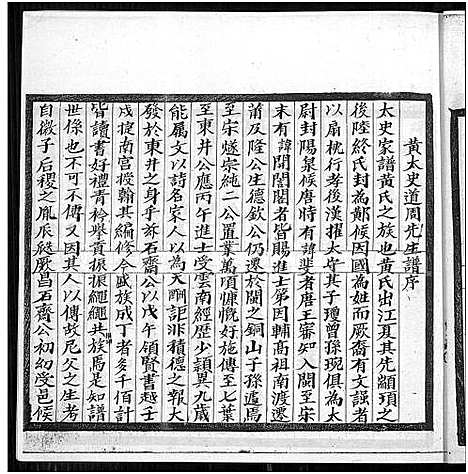 黄太史道周先生譜序
太史家譜黄氏之族也黄氏出江夏其先顓頊之
後陸終氏封為鄖候因國為姓而厥裔有文疆者
以扇枕行孝後漢擢太守其子瓊曾孫琬俱為太
尉封陽泉候唐時有諱斐者唐王審知入閩至宋
末有諱開閣者皆賜進士第因輔高祖南渡遷
莆及隆公生德欽公仍遷於閩之銅山子孫蕃焉
至宋燧宗純二公置業萬頃慷慨好施傳至七葉
至東井公應丙午進士受雲南經歷少穎異九歲
能属文以詩名家人以為天酬詎非積德之報大
發於東井之身乎訥石齋公以戊午領賢書越壬
戌捷南宫授翰其編修今戚族成丁者多千佰計
皆讀書好禮青衿舉貢振振繩繩共族焉是知譜
世係也不可不傳又因其人以傳故尼父之生考
自微子后稷之胤辰發厥昌石齋公初幼受邑候